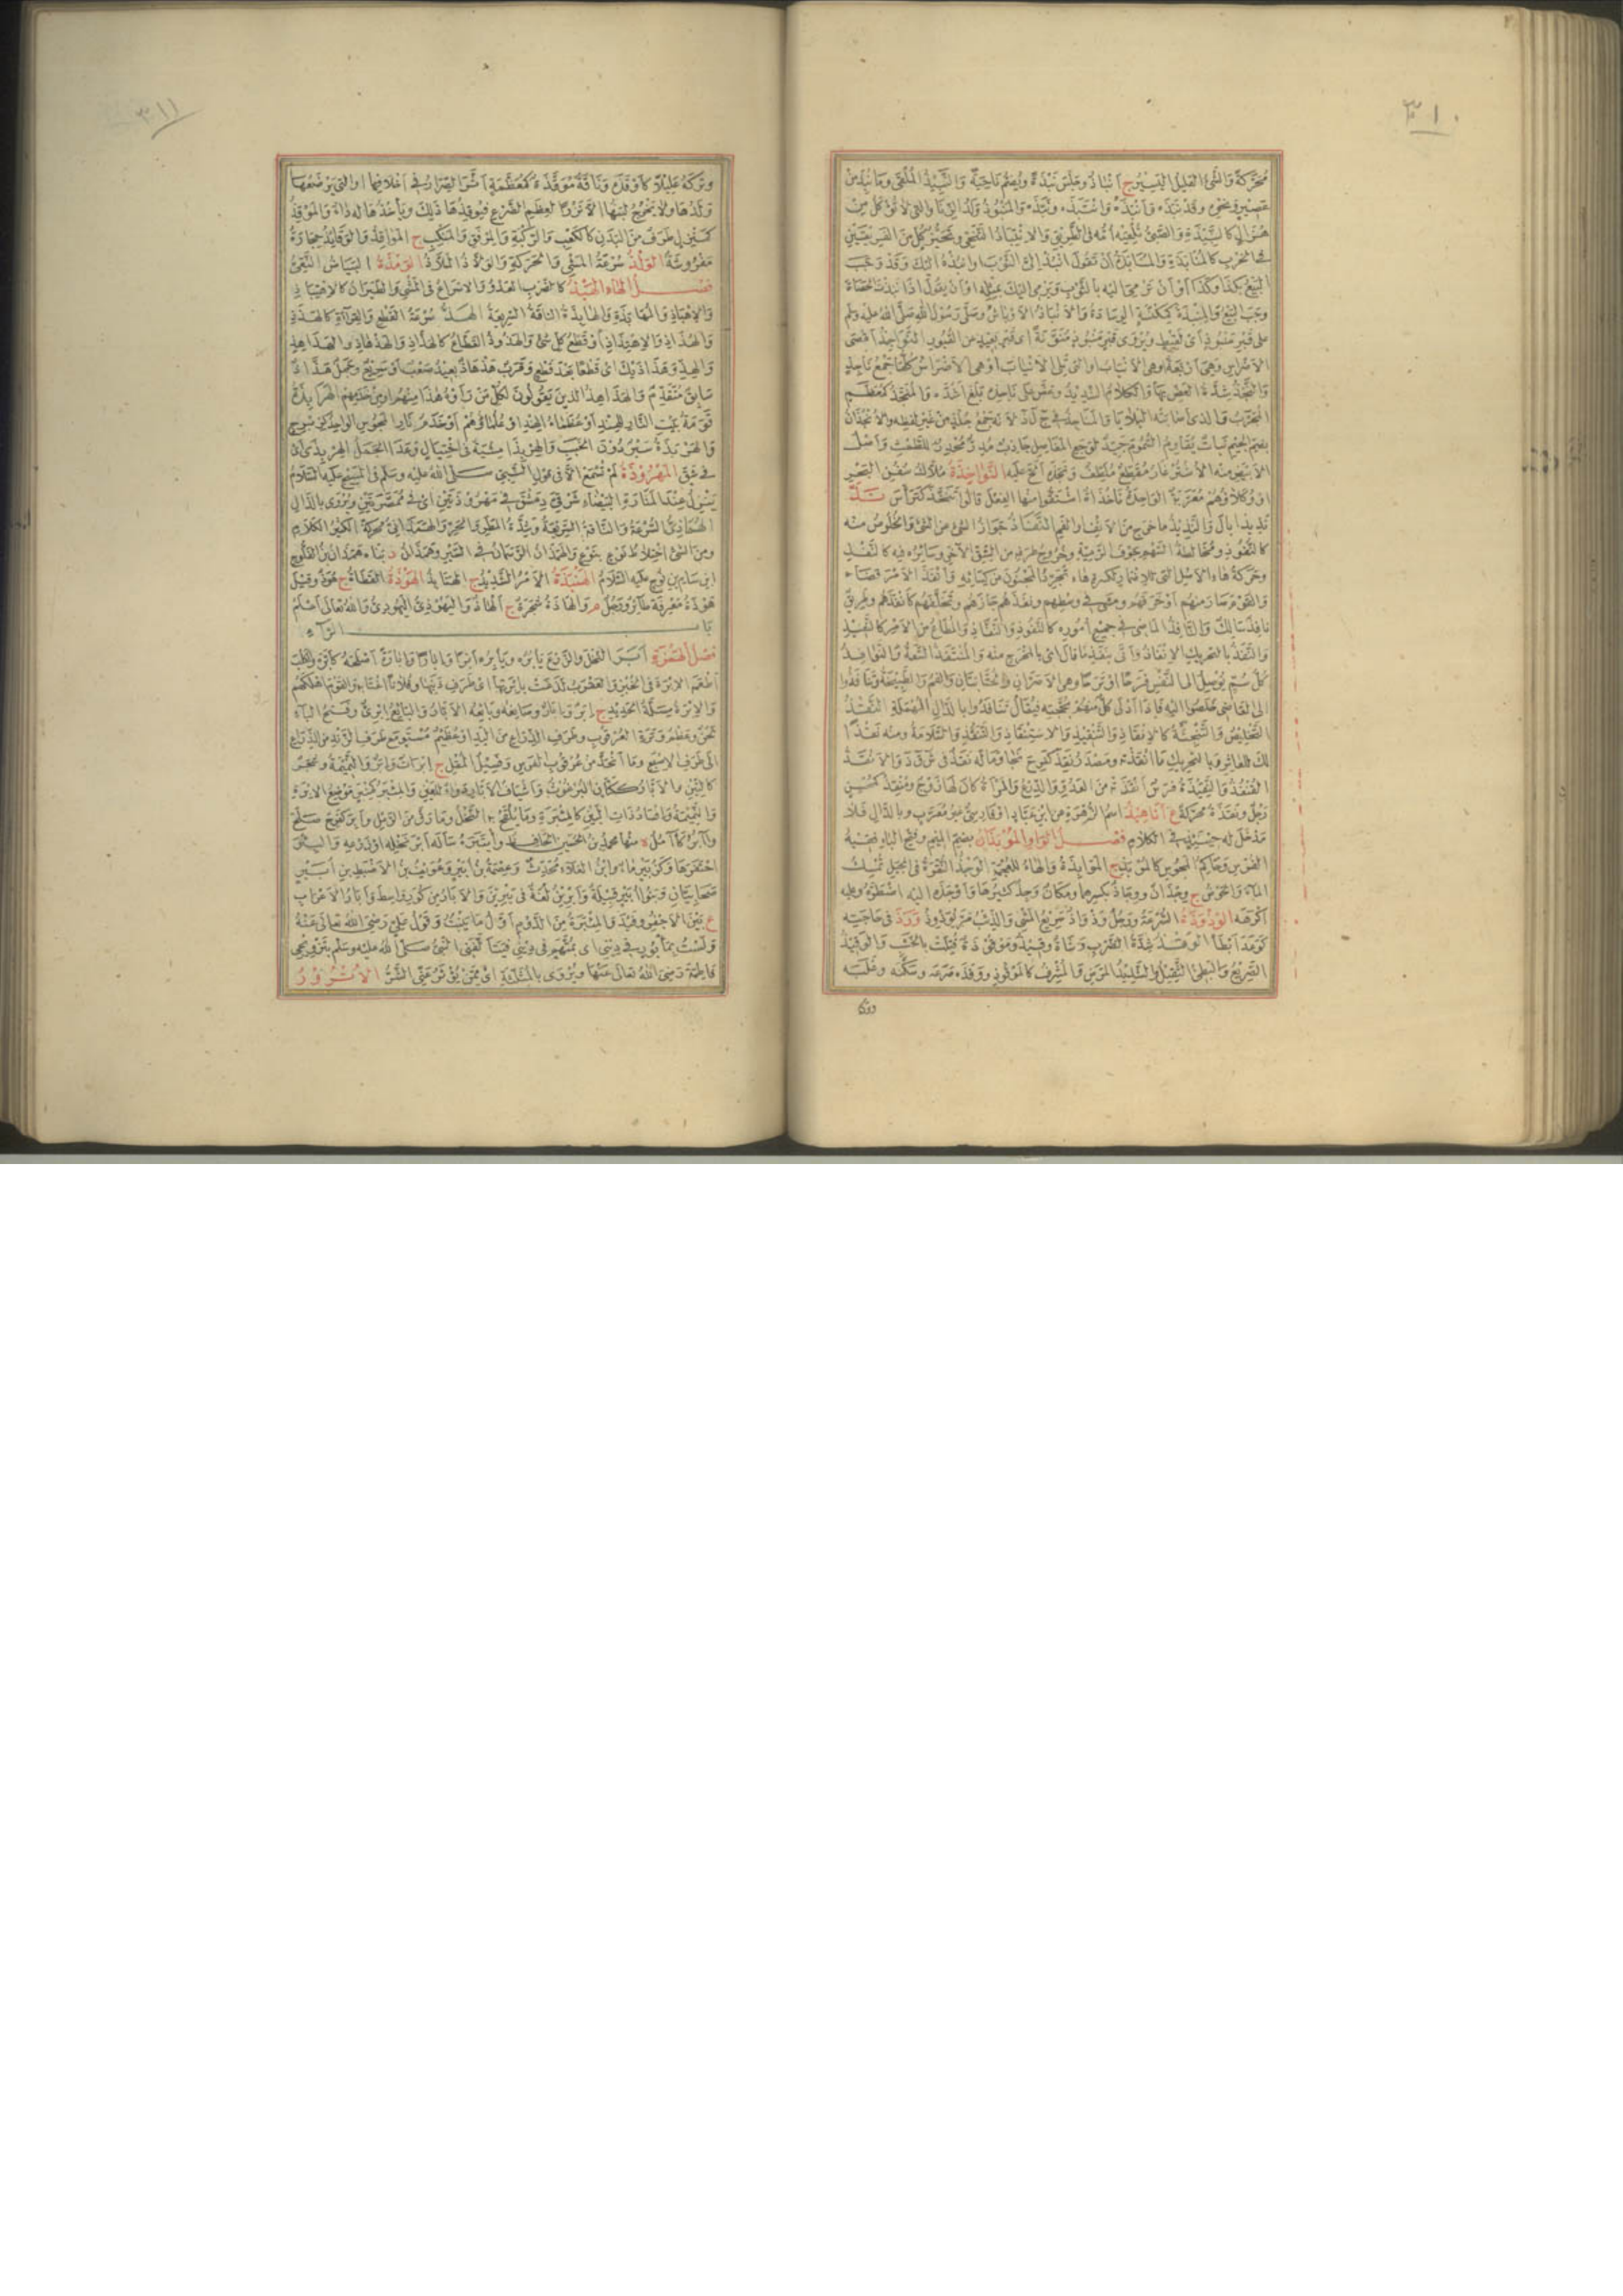 ٣١٠
مُحَرَّكَةً وَالشَّئُ القَلِيلُ اليَسِيْرُ ج اَنْبَاذٌ وجَلَسَ نَبْذَةً ويُضَمُّ نَاحِيَةً وَالنَّبِيْذُ المُلْقَى وَمَا نُبِذَ مِنْ
عَصِيْرٍ ونَحْوِهِ وقَدْ نَبَذَهُ وَاَنْبَذَهُ وَانْتَبَذَهُ ونَبَّذَهُ وَالمَنْبُوْذُ وَلَدُ الزِّنَا والتى لَا تُؤْكَلُ مِنْ
هُزَالٍ كالنَّبِيْذَةِ وَالصَّبِىُّ تُلْقِيْهِ اُمُّهُ فى الطَّرِيْقِ وَالِانْتِبَاذُ التَّنَحِّى وتَحَيُّزُ كُلٍّ مِنَ الفَرِيْقَيْنِ
فى الحَرْبِ كَالمُنَابَذَةِ وَالمُنَابَذَةُ اَنْ تَقُوْلَ انْبِذْ اِلَىَّ الثَّوْبَ اوانبِذُهُ اِلَيْكَ وَقَدْ وَجَبَ
البَيْعُ بِكَذَا وَكَذَا اَوْ اَنْ تَرْمِىَ اِلَيْهِ بِالثَّوْبِ وَيَرْمِىَ اِلَيْكَ بِمِثْلِهِ اَوْ اَنْ يَقُوْلَ اِذَا نَبَذْتُ الحَصَاةَ
وَجَبَ البَيْعُ وَالمِنْبَذَةُ كَمِكْنَسَةٍ الوِسَادَةُ وَالاَنْبَاذُ الاَوْبَاشُ وصَلَّى رَسُوْلُ اللهِ صَلَّى اللهُ عليه وسلم
على قَبْرٍ مَنْبُوْذٍ اَىْ لَقِيْطٍ وَيُرْوَى قَبْرٍ مَنْبُوْذٍ مُنَوَّنَةً اَىْ قَبْرٍ بَعِيْدٍ مِنَ القُبُوْرِ النَّوَاجِذُ اَقْصَى
الاَضْرَاسِ وَهِىَ اَرْبَعَةٌ اَوْ هِىَ الاَنْيَابُ اوالتى تَلِى الاَنْيَابَ اَوْ هِىَ الاَضْرَاسُ كُلُّهَا جَمْعُ نَاجِذٍ
وَالنَّجْذُ شِدَّةُ العَضِّ بِهَا وَالكَلَامُ الشَّدِيْدُ وعَضَّ عَلَى نَاجِذِهِ بَلَغَ اَشُدَّهُ وَالمُنَجَّذُ كَمُعَظَّمٍ
المُجَرَّبُ وَالَّذِى اَصَابَتْهُ البَلَايَا وَالمَنَاجِذُ فى ج ل ذ لِاَنَّهُ جَمْعُ جُلْذٍ مِنْ غَيْرِ لَفْظِهِ وَالاَنْجُذَانُ
بِضَمِّ الجِيْمِ نَبَاتٌ يُقَاوِمُ السُّمُوْمَ جَيِّدٌ لِوَجَعِ المَفَاصِلِ جَاذِبٌ مُدِرٌّ مُحْدِرٌ لِلطَّمْثِ وَاَصْلُ
الاَبْيَضِ مِنْهُ الاُشْتُرْغَازُ مُقَطِّعٌ مُلَطِّفٌ وَنَجَذَهُ اَلَحَّ عَلَيْهِ النَّوَاخِذَةُ مُلَّاكُ سُفُنِ البَحْرِ
اَوْ وُكَلَاؤُهُمْ مُعَرَّبَةٌ الوَاحِدُ نَاخُذَاةٌ اشْتَقُّوْا مِنْهَا الفِعْلَ قَالُوْا تَنَخَّذَ كَتَرَأَّسَ نَذَّ
نَذِيْذًا بَالَ وَالنَّذِيْذُ مَا خَرَجَ مِنَ الاَنْفِ اوالفَمِ النَّفَاذُ جَوَازُ الشَّىءِ عَنِ الشَّىءِ وَالخُلُوْصُ مِنْهُ
كَالنُّفُوْذِ وَمُخَالَطَةُ السَّهْمِ جَوْفَ الرَّمِيَّةِ وَخُرُوْجُ طَرَفِهِ مِنَ الشِّقِّ الآخَرِ وَسَائِرُهُ فِيْهِ كَالنَّفْذِ
وَحَرَكَةُ هَاءِ الاَصْلِ التى لِلْاِضْمَارِ كَكَسْرَةِ هَاءِ تَجَرُّدَ المَجْنُوْنِ مِنْ كِسَائِهِ وَاَنْفَذَ الاَمْرَ قَضَاهُ
وَالقَوْمَ صَارَ مِنْهُمْ اَوْ خَرَقَهُمْ وَمَشَى فِى وَسْطِهِمْ وَنَفَذَهُمْ جَازَهُمْ وَتَخَلَّفَهُمْ كَاَنْفَذَهُمْ وَطَرِيْقٌ
نَافِذٌ سَالِكٌ وَالنَّافِذُ المَاضِى فى جَمِيْعِ اُمُوْرِهِ كَالنَّفُوْذِ وَالنَّفَّاذِ وَالمُطَاعُ مِنَ الاَمْرِ كَالنَّفِيْذِ
وَالنَّفَذُ بِالتَّحْرِيْكِ الاِنْفَاذُ وَاَتَى بِنَفَذِ مَا قَالَ اىْ بِالمَخْرَجِ مِنْهُ وَالمُنْتَفَذُ السَّعَةُ وَالنَّوَافِذُ
كُلُّ سَمٍّ يُوْصِلُ اِلَى النَّفْسِ فَرَحًا اَوْ تَرَحًا وهى الاَصْرَانِ وَالخِنَّابَتَانِ وَالفَمُ وَالطِّبِّيْجَةُ وتَنَافَذُوْا
اِلَى القَاضِى خَلَصُوْا اِلَيْهِ فَاِذَا اَدْلَى كُلٌّ مِنْهُمْ بِحُجَّتِهِ فَيُقَالُ تَنَافَدُوْا بِالدَّالِ المُهْمَلَةِ النَّقْذُ
التَّخْلِيْصُ وَالتَّنْجِيَةُ كَالاِنْقَاذِ وَالتَّنْقِيْذِ وَالاِسْتِنْقَاذِ وَالتَّنَقُّذِ وَالسَّلَامَةُ وَمِنْهُ نَقْذًا
لَكَ لِلعَاثِرِ وَبِالتَّحْرِيْكِ مَا اَنْقَذْتَهُ وَمَصْدَرُ نَقِذَ كَفَرِحَ نَجَا وَمَا لَهُ نَقَذٌ فى ش ق ذ وَالاَنْقَذُ
القُنْفُذُ وَالنَّقِيْذَةُ فَرَسٌ اَنْقَذْتَهُ مِنَ العَدُوِّ وَالدِّرْعُ وَالمَرْاَةُ كَانَ لَهَا زَوْجٌ وَمُنْقِذٌ كَمُحْسِنٍ
رَجُلٌ وَنَقَذَةُ مُحَرَّكَةً ع اَنَاهِيْذُ اسْمُ الزُّهَرَةِ عَنِ ابْنِ عَبَّادٍ اَوْ فَارِسِىٌّ غَيْرُ مُعَرَّبٍ وَبِالدَّالِ فَلَا
مَدْخَلَ لَهُ حِيْنَئِذٍ فى الكَلَامِ فَصْلُ الوَاوِ المُوْبَذَانُ بِضَمِّ المِيْمِ وَفَتْحِ البَاءِ فَقِيْهُ
الفُرْسِ وَحَاكِمُ المَجُوْسِ كَالمُوْبَذِ ج المَوَابِذَةُ وَالهَاءُ لِلعُجْمَةِ الوَجْذُ النُّقْرَةُ فى الجَبَلِ تُمْسِكُ
المَاءَ وَالحَوْضُ ج وِجْذَانٌ وَوِجَاذٌ بِكَسْرِهِمَا وَمَكَانٌ وَجِذٌ كَثِيْرُهَا وَاَوْجَذَهُ اِلَيْهِ اضْطَرَّهُ وَعَلَيْهِ
اَكْرَهَهُ الوَذْوَذَةُ السُّرْعَةُ وَرَجُلٌ وَذْوَاذٌ سَرِيْعُ المَشْىِ وَالذِّئْبُ مَرَّ يُوَذْوِذُ وَرَذَ فى حَاجَتِهِ
كَوَعَدَ اَبْطَأَ الوَقْذُ شِدَّةُ الضَّرْبِ وَشَاةٌ وَقِيْذٌ وَمَوْقُوْذَةٌ قُتِلَتْ بِالخَشَبِ وَالوَقِيْذُ
الصَّرِيْعُ وَالبَطِئُ الثَّقِيْلُ وَالشَّدِيْدُ المَرَضِ وَالمُشْرِفُ كَالمَوْقُوْذِ وَوَقَذَهُ صَرَعَهُ وَسَكَّنَهُ وَغَلَبَهُ
وتركه
٣١١
وَتَرَكَهُ عَلِيْلًا كَاَوْقَذَهُ وَنَاقَةٌ مُوَقَّذَةٌ كَمُعَظَّمَةٍ اَثَّرَ الصِّرَارُ فى اَخْلَافِهَا اوالتى يَرْضَعُهَا
وَلَدُهَا وَلَا يَخْرُجُ لَبَنُهَا اِلَّا نَزْرًا لِعِظَمِ الضَّرْعِ فَيُوْقِذُهَا ذَلِكَ وَيَأْخُذُهَا لَهُ دَاءٌ وَالمَوْقِذُ
كَمَنْزِلٍ طَرَفٌ مِنَ البَدَنِ كَالكَعْبِ وَالرُّكْبَةِ وَالمِرْفَقِ وَالمَنْكِبِ ج المَوَاقِذُ وَالوَقَائِذُ حِجَارَةٌ
مَفْرُوْشَةٌ الوَلْذُ سُرْعَةُ المَشْىِ وَالحَرَكَةِ وَالوَلَّاذُ المَلَّاذُ الوَمْذَةُ البَيَاضُ النَّقِىُّ
فَصْلُ الهَاءِ الهَبْذُ كَالضَّرْبِ العَدْوُ وَالاِسْرَاعُ فى المَشْىِ وَالطَّيَرَانِ كَالاِهْتِبَاذِ
وَالاِهْبَاذِ وَالمُهَابَذَةِ وَالهَابِذَةُ النَّاقَةُ السَّرِيْعَةُ الهَذُّ سُرْعَةُ القَطْعِ وَالقِرَاءَةِ كَالهَذَذِ
وَالهَذَاذِ وَالاِهْتِذَاذِ اَوْ قَطْعُ كُلِّ شَىْءٍ وَالهَذُوْذُ القَطَّاعُ كَالهَذَّاذِ وَالهَذْهَاذِ وَالهُذَاهِذِ
وَالهَذِّ وَهَذَاذَيْكَ اىْ قَطْعًا بَعْدَ قَطْعٍ وَقَرَبٌ هَذْهَاذٌ بَعِيْدٌ صَعْبٌ اَوْ سَرِيْعٌ وَجَمَلٌ هَذَّاذٌ
سَابِقٌ مُتَقَدِّمٌ وَالهَذَاهِذُ الَّذِيْنَ يَقُوْلُوْنَ لِكُلِّ مَنْ رَأَوْهُ هَذَا مِنْهُمْ اومِنْ خَدَمِهِمْ الهَرَابِذَةُ
قَوَمَةُ بَيْتِ النَّارِ لِلهِنْدِ اَوْ عُظَمَاءُ الهِنْدِ اَوْ عُلَمَاؤُهُمْ اَوْ خَدَمُ نَارِ المَجُوْسِ الوَاحِدُ كَزِبْرِجٍ
وَالهَرْبَذَةُ سَيْرٌ دُوْنَ الخَبَبِ وَالهِرْبِذَا مِشْيَةٌ فى اخْتِيَالٍ وَعَدَا الجَمَلُ الهِرْبِذَى اىْ
فى شِقٍّ المَهْرُوْذَةُ لَمْ تُسْمَعْ اِلَّا فى قَوْلِ النَّبِىِّ صَلَّى اللهُ عليه وسلّم فى المَسِيْحِ عَلَيْهِ السَّلَامُ
يَنْزِلُ عِنْدَ المَنَارَةِ البَيْضَاءِ شَرْقِىَّ دِمَشْقَ فى مَهْرُوْذَتَيْنِ اىْ فى مُمَصَّرَتَيْنِ وَيُرْوَى بِالدَّالِ
الهَمَاذِىُّ السُّرْعَةُ وَالنَّاقَةُ السَّرِيْعَةُ وَشِدَّةُ المَطَرِ وَالحَرِّ وَالهَمَذَانِىُّ مُحَرَّكَةً الكَثِيْرُ الكَلَامِ
وَمِنَ المَشْىِ اخْتِلَاطُ نَوْعٍ بِنَوْعٍ وَالهَمَذَانُ الرَّسَمَانُ فى السَّيْرِ وَهَمَذَانُ د بَنَاهُ هَمَذَانُ بْنُ الفَلُّوْجِ
ابْنِ سَامِ بْنِ نُوْحٍ عَلَيْهِ السَّلَامُ الهَنْبَذَةُ الاَمْرُ الشَّدِيْدُ ج الهَنَابِذُ الهَوْذَةُ القَطَاةُ ج هُوْذٌ وَقِيْلَ
هَوْذَةُ مَعْرِفَةً طَائِرٌ وَرَجُلٌ م وَالهَاذَةُ شَجَرَةٌ ج الهَاذُ وَاليَهُوْذِىُّ اليَهُوْدِىُّ وَاللهُ تَعَالَى اَعْلَمُ
بَابُ الرَّاءِ
فَصْلُ الهَمْزَةِ اَبَرَ النَّخْلَ وَالزَّرْعَ يَأْبُرُهُ وَيَأْبِرُهُ اَبْرًا وَاِبَارًا وَاِبَارَةً اَصْلَحَهُ كَاَبَّرَهُ وَالكَلْبَ
اَطْعَمَهُ الاِبْرَةَ فى الخُبْزِ وَالعَقْرَبُ لَدَغَتْ بِاِبْرَتِهَا اىْ طَرَفِ ذَنَبِهَا وَفُلَانًا اغْتَابَهُ وَالقَوْمَ اَهْلَكَهُمْ
وَالاِبْرَةُ مِسَلَّةُ الحَدِيْدِ ج اِبَرٌ وَاِبَارٌ وَصَانِعُهُ وَبَائِعُهُ الاَبَّارُ وَالبَائِعُ اِبْرِىٌّ وَفَتْحُ البَاءِ
لَحْنٌ وَعَظْمُ وَتَرَةِ العُرْقُوْبِ وَطَرَفُ الذِّرَاعِ مِنَ اليَدِ اَوْ عَظْمٌ مُسْتَوٍ مَعَ طَرَفِ الزَّنْدِ مِنَ الذِّرَاعِ
اِلَى طَرَفِ الاِصْبَعِ وَمَا انْحَدَّ مِنْ عُرْقُوْبِ الفَرَسِ وَفَسِيْلُ المُقْلِ ج اِبَرَاتٌ وَاِبَرٌ وَالنَّمِيْمَةُ وَشَجَرٌ
كَالتِّيْنِ وَالاَبَّارُ كَكَتَّانٍ البُرْغُوْثُ وَاَشْيَافُ الاَبَّارِ دَوَاءٌ لِلعَيْنِ وَالمِئْبَرُ كَمِنْبَرٍ مَوْضِعُ الاِبْرَةِ
وَالنَّمِيْمَةُ وَاِفْسَادُ ذَاتِ البَيْنِ كَالمِئْبَرَةِ وَمَا يُلْقَحُ بِهِ النَّخْلُ وَمَا رَقَّ مِنَ الرَّمْلِ وَاَبِرَ كَفَرِحَ صَلَحَ
وَآبُرُ كَآمُلَ ة مِنْهَا مُحَمَّدُ بْنُ الحُسَيْنِ الحَافِظُ وَائْتَبَرَهُ سَأَلَهُ اَبْرَ نَخْلِهِ اَوْ زَرْعِهِ وَالبِئْرَ
احْتَفَرَهَا وَكَزُبَيْرٍ مَاءٌ وَابْنُ العَلَاءِ مُحَدِّثٌ وَعِصْمَةُ بْنُ اُبَيْرٍ وَعُوَيْفُ بْنُ الاَضْبَطِ بْنِ اُبَيْرٍ
صَحَابِيَّانِ وَبَنُوْ اُبَيْرٍ قَبِيْلَةٌ وَاَبْرِيْنُ لُغَةٌ فى يَبْرِيْنَ وَالآبَارُ مِنْ كُوَرِ وَاسِطَ وَآبَارُ الاَعْرَابِ
ع بَيْنَ الاَجْفُرِ وَفَيْدَ وَالمِئْبَرَةُ مِنَ الدَّوْمِ اَوَّلُ مَا يَنْبُتُ وَقَوْلُ عَلِىٍّ رَضِىَ اللهُ تَعَالَى عَنْهُ
وَلَسْتُ بِمَأْبُوْرٍ فى دِيْنِى اىْ بِمُتَّهَمٍ فى دِيْنِى فَيَتَأَلَّفَنِى النَّبِىُّ صَلَّى اللهُ عليه وسلّم بِتَزْوِيْجِى
فَاطِمَةَ رَضِىَ اللهُ تَعَالَى عَنْهَا وَيُرْوَى بِالمُثَلَّثَةِ اىْ مِمَّنْ يُؤْثَرُ عَنِّى الشَّرُّ الاُتْرُوْرُ